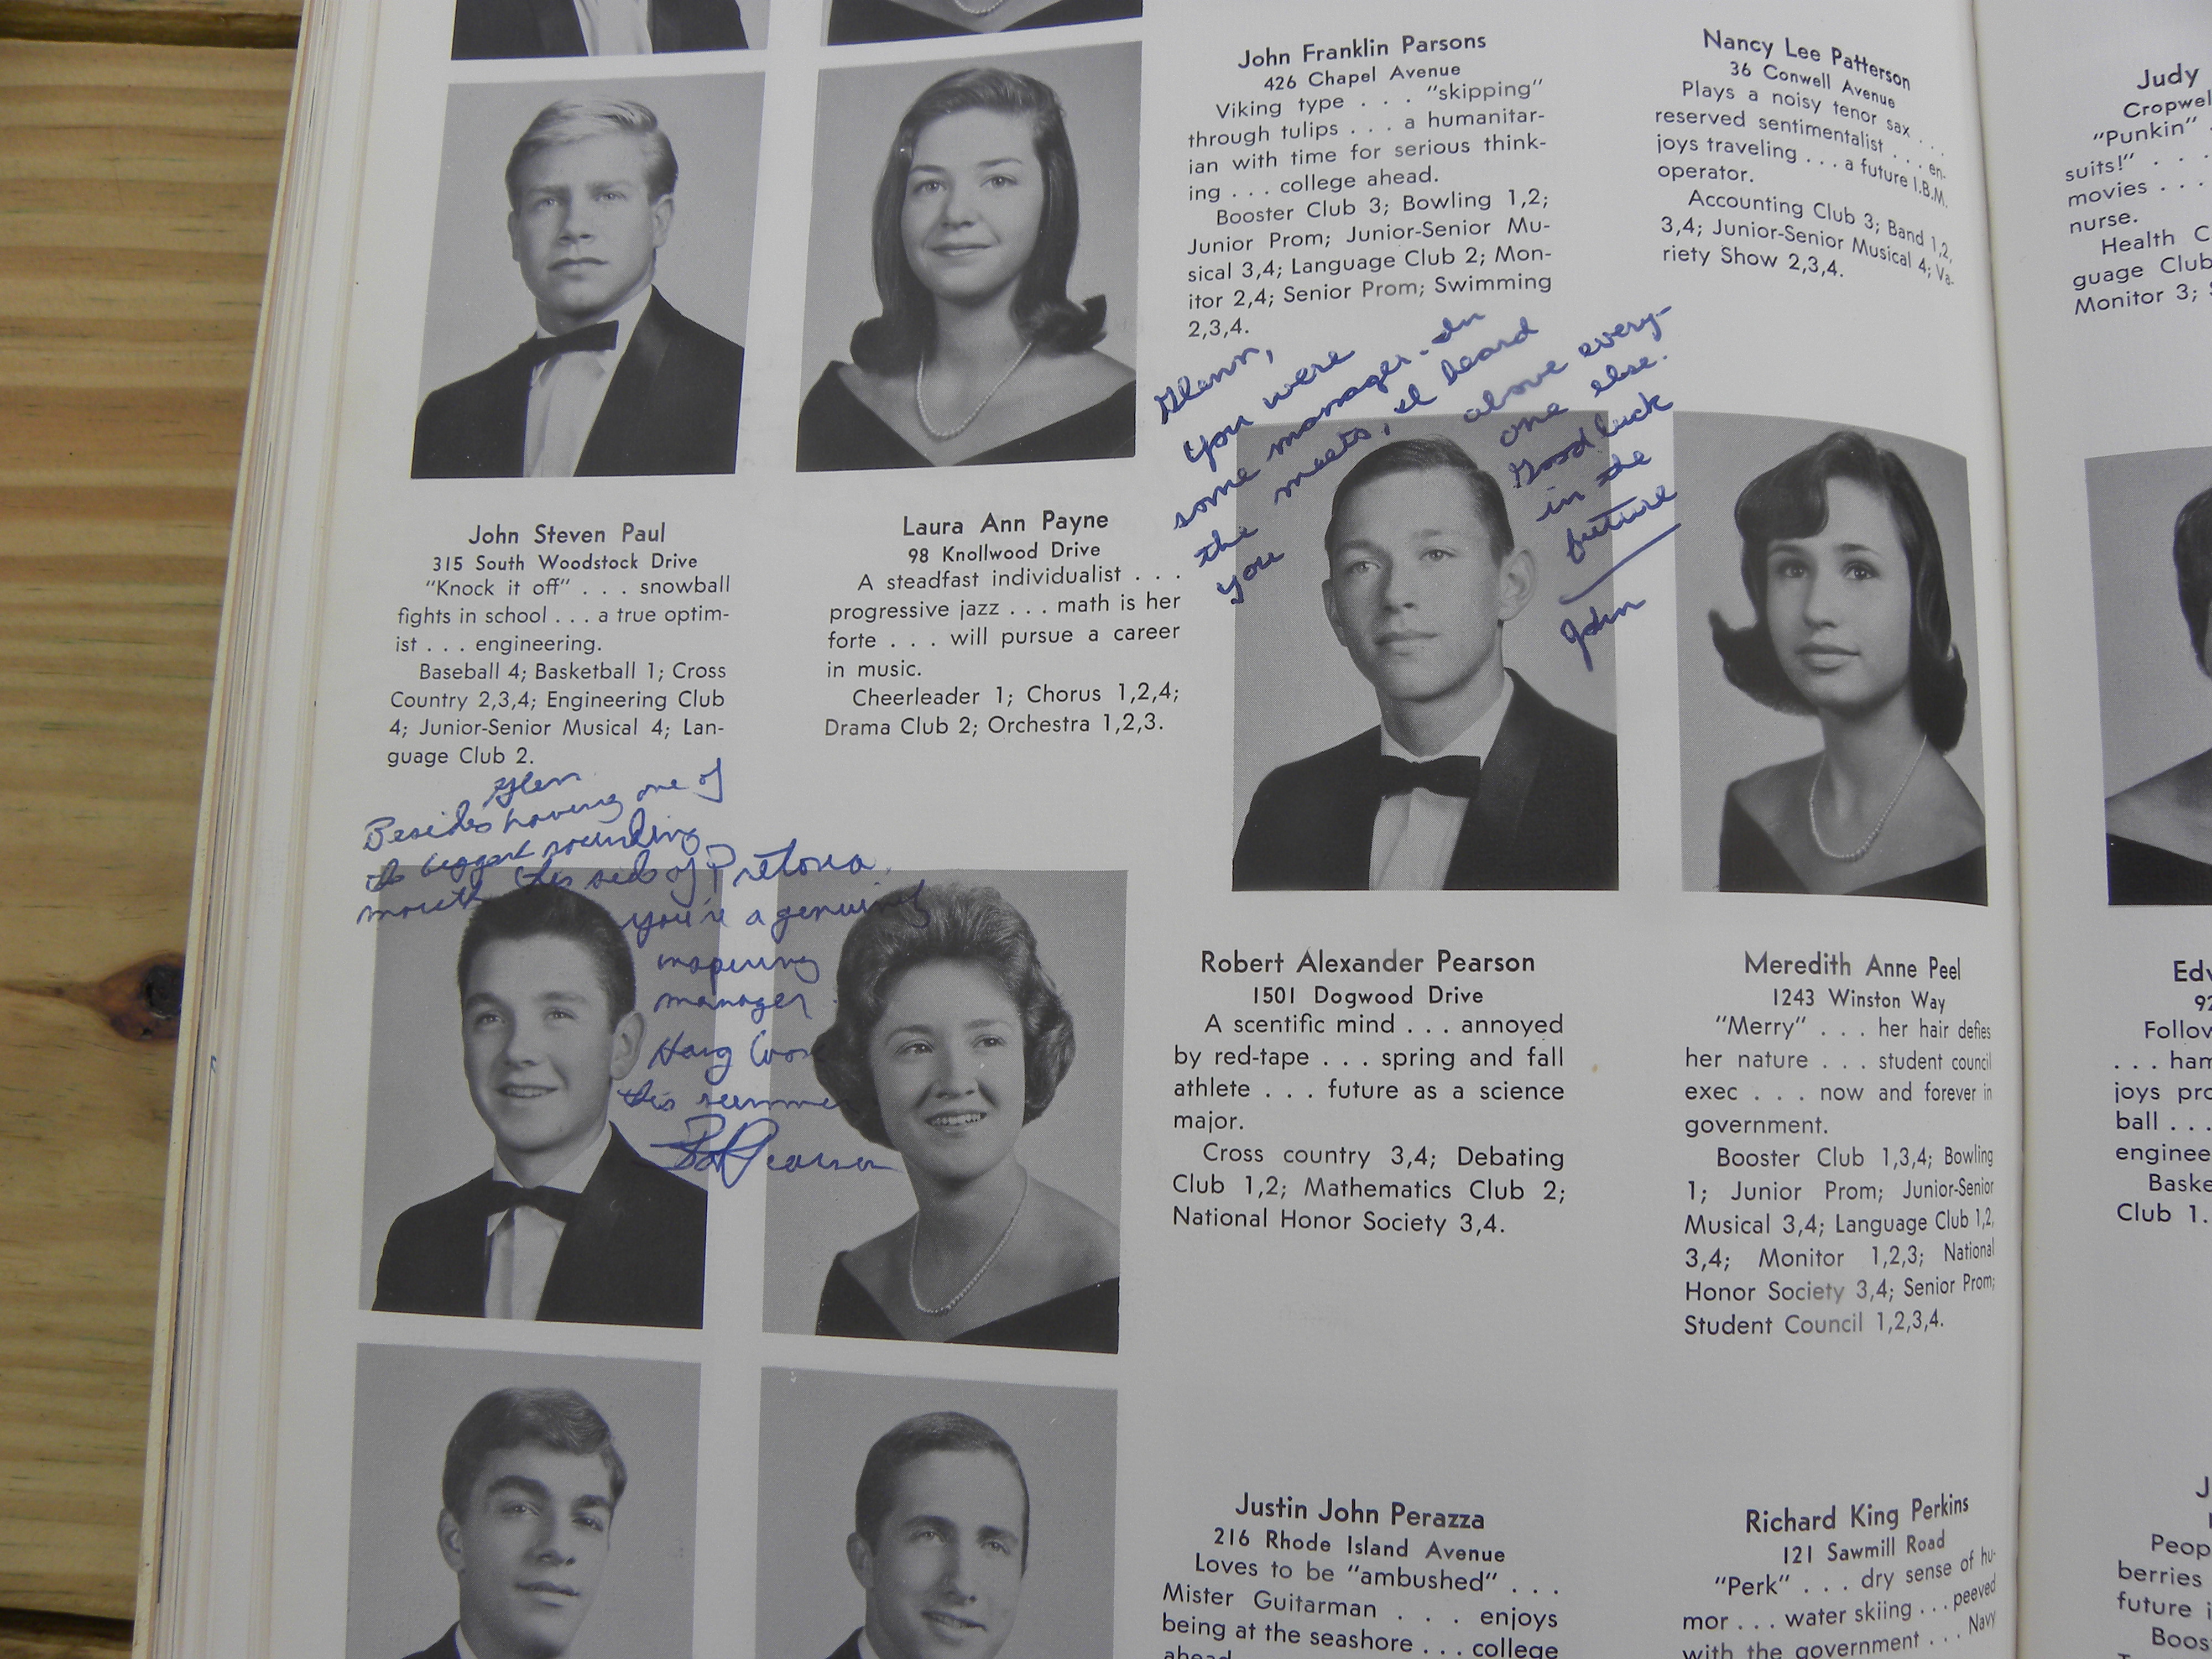 John Franklin Parsons
426 Chapel Avenue
Viking type . . . "skipping"
through tulips . . . a humanitar-
ian with time for serious think-
ing . . . college ahead.
Booster Club 3; Bowling 1,2;
Junior Prom; Junior-Senior Mu-
sical 3,4; Language Club 2; Mon-
itor 2,4; Senior Prom; Swimming
2,3,4.
Nancy Lee Patterson
36 Conwell Avenue
Plays a noisy tenor sax . . .
reserved sentimentalist . . . en-
joys traveling . . . a future I.B.M.
operator.
Accounting Club 3; Band 1,2,
3,4; Junior-Senior Musical 4; Va-
riety Show 2,3,4.
Glenn,
You were
some manager. In
the meets, I heard
you above every-
one else.
Good luck
in the
future
John
John Steven Paul
315 South Woodstock Drive
"Knock it off" . . . snowball
fights in school . . . a true optim-
ist . . . engineering.
Baseball 4; Basketball 1; Cross
Country 2,3,4; Engineering Club
4; Junior-Senior Musical 4; Lan-
guage Club 2.
Laura Ann Payne
98 Knollwood Drive
A steadfast individualist . . .
progressive jazz . . . math is her
forte . . . will pursue a career
in music.
Cheerleader 1; Chorus 1,2,4;
Drama Club 2; Orchestra 1,2,3.
Glen
Besides having one of
the biggest sounding
mouth this side of Pretoria
you're a genuine
inspiring
manager
Hang
this summer
Bob Pearson
Robert Alexander Pearson
1501 Dogwood Drive
A scentific mind . . . annoyed
by red-tape . . . spring and fall
athlete . . . future as a science
major.
Cross country 3,4; Debating
Club 1,2; Mathematics Club 2;
National Honor Society 3,4.
Meredith Anne Peel
1243 Winston Way
"Merry" . . . her hair defies
her nature . . . student council
exec . . . now and forever in
government.
Booster Club 1,3,4; Bowling
1; Junior Prom; Junior-Senior
Musical 3,4; Language Club 1,2,
3,4; Monitor 1,2,3; National
Honor Society 3,4; Senior Prom;
Student Council 1,2,3,4.
Justin John Perazza
216 Rhode Island Avenue
Loves to be "ambushed" . . .
Mister Guitarman . . . enjoys
being at the seashore . . . college
ahead.
Richard King Perkins
121 Sawmill Road
"Perk" . . . dry sense of hu-
mor . . . water skiing . . . peeved
with the government . . . Navy
Judy
Cropwel
"Punkin"
suits!" . . .
movies . . .
nurse.
Health C
guage Club
Monitor 3;
Edw
92
Follow
. . . ham
joys pro
ball . . .
enginee
Baske
Club 1.
J
Peop
berries
future i
Boos